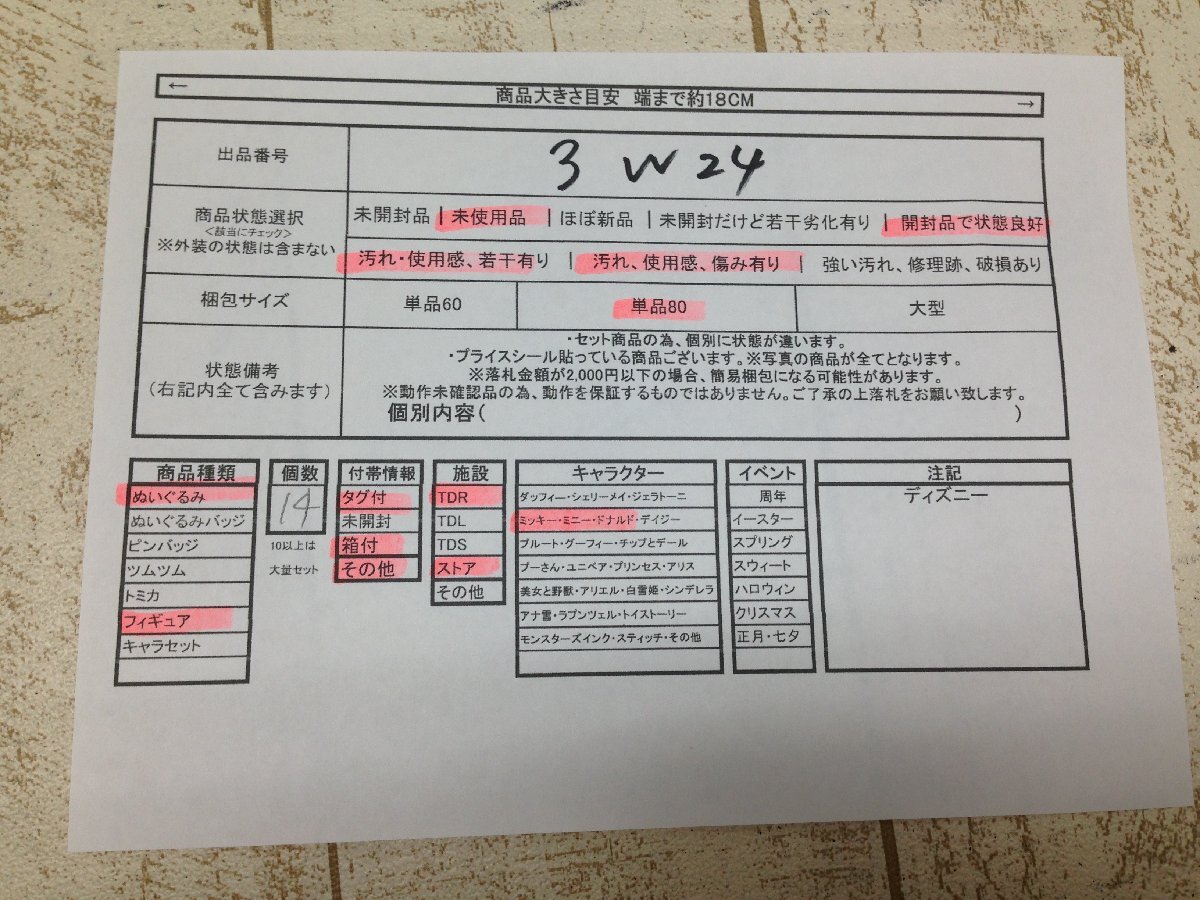 ← 商品大きさ目安 端まで約18CM →
出品番号 3 W 24
商品状態選択
<該当にチェック>
※外装の状態は含まない
未開封品 | 未使用品 | ほぼ新品 | 未開封だけど若干劣化有り | 開封品で状態良好
汚れ・使用感、若干有り | 汚れ、使用感、傷み有り | 強い汚れ、修理跡、破損あり
梱包サイズ 単品60 単品80 大型
状態備考
(右記内全て含みます)
・セット商品の為、個別に状態が違います。
・プライスシール貼っている商品ございます。※写真の商品が全てとなります。
※落札金額が2,000円以下の場合、簡易梱包になる可能性があります。
※動作未確認品の為、動作を保証するものではありません。ご了承の上落札をお願い致します。
個別内容( )
商品種類
ぬいぐるみ
ぬいぐるみバッジ
ピンバッジ
ツムツム
トミカ
フィギュア
キャラセット
個数
14
10以上は
大量セット
付帯情報
タグ付
未開封
箱付
その他
施設
TDR
TDL
TDS
ストア
その他
キャラクター
ダッフィー・シェリーメイ・ジェラトーニ
ミッキー・ミニー・ドナルド・デイジー
プルート・グーフィー・チップとデール
プーさん・ユニベア・プリンセス・アリス
美女と野獣・アリエル・白雪姫・シンデレラ
アナ雪・ラプンツェル・トイストーリー
モンスターズインク・スティッチ・その他
イベント
周年
イースター
スプリング
スウィート
ハロウィン
クリスマス
正月・七夕
注記
ディズニー